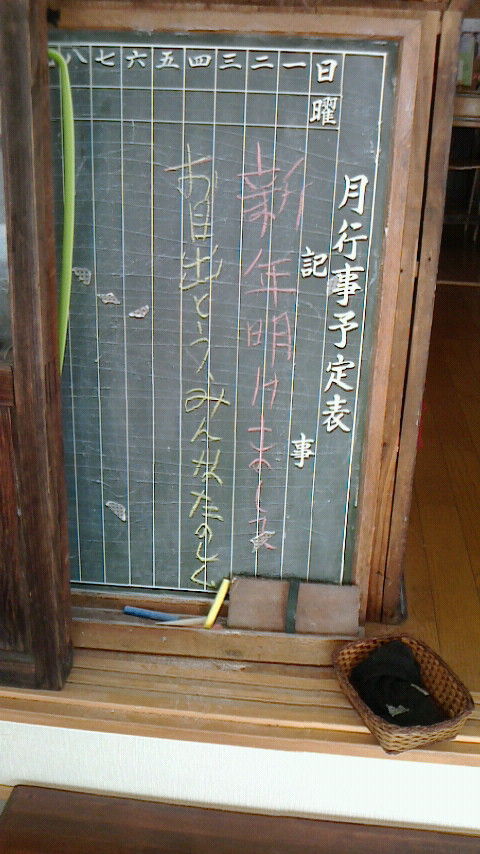 月行事予定表
日 一 二 三 四 五 六 七 八
曜
記事
新年明けまして
お目出とう、みんなたのしく